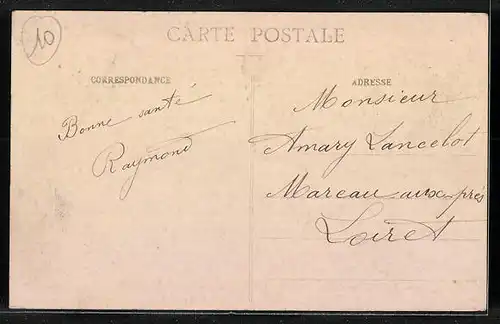 10
CARTE POSTALE
CORRESPONDANCE
Bonne santé
Raymond
ADRESSE
Monsieur
Amary Lancelot
Mareau aux prés
Loiret